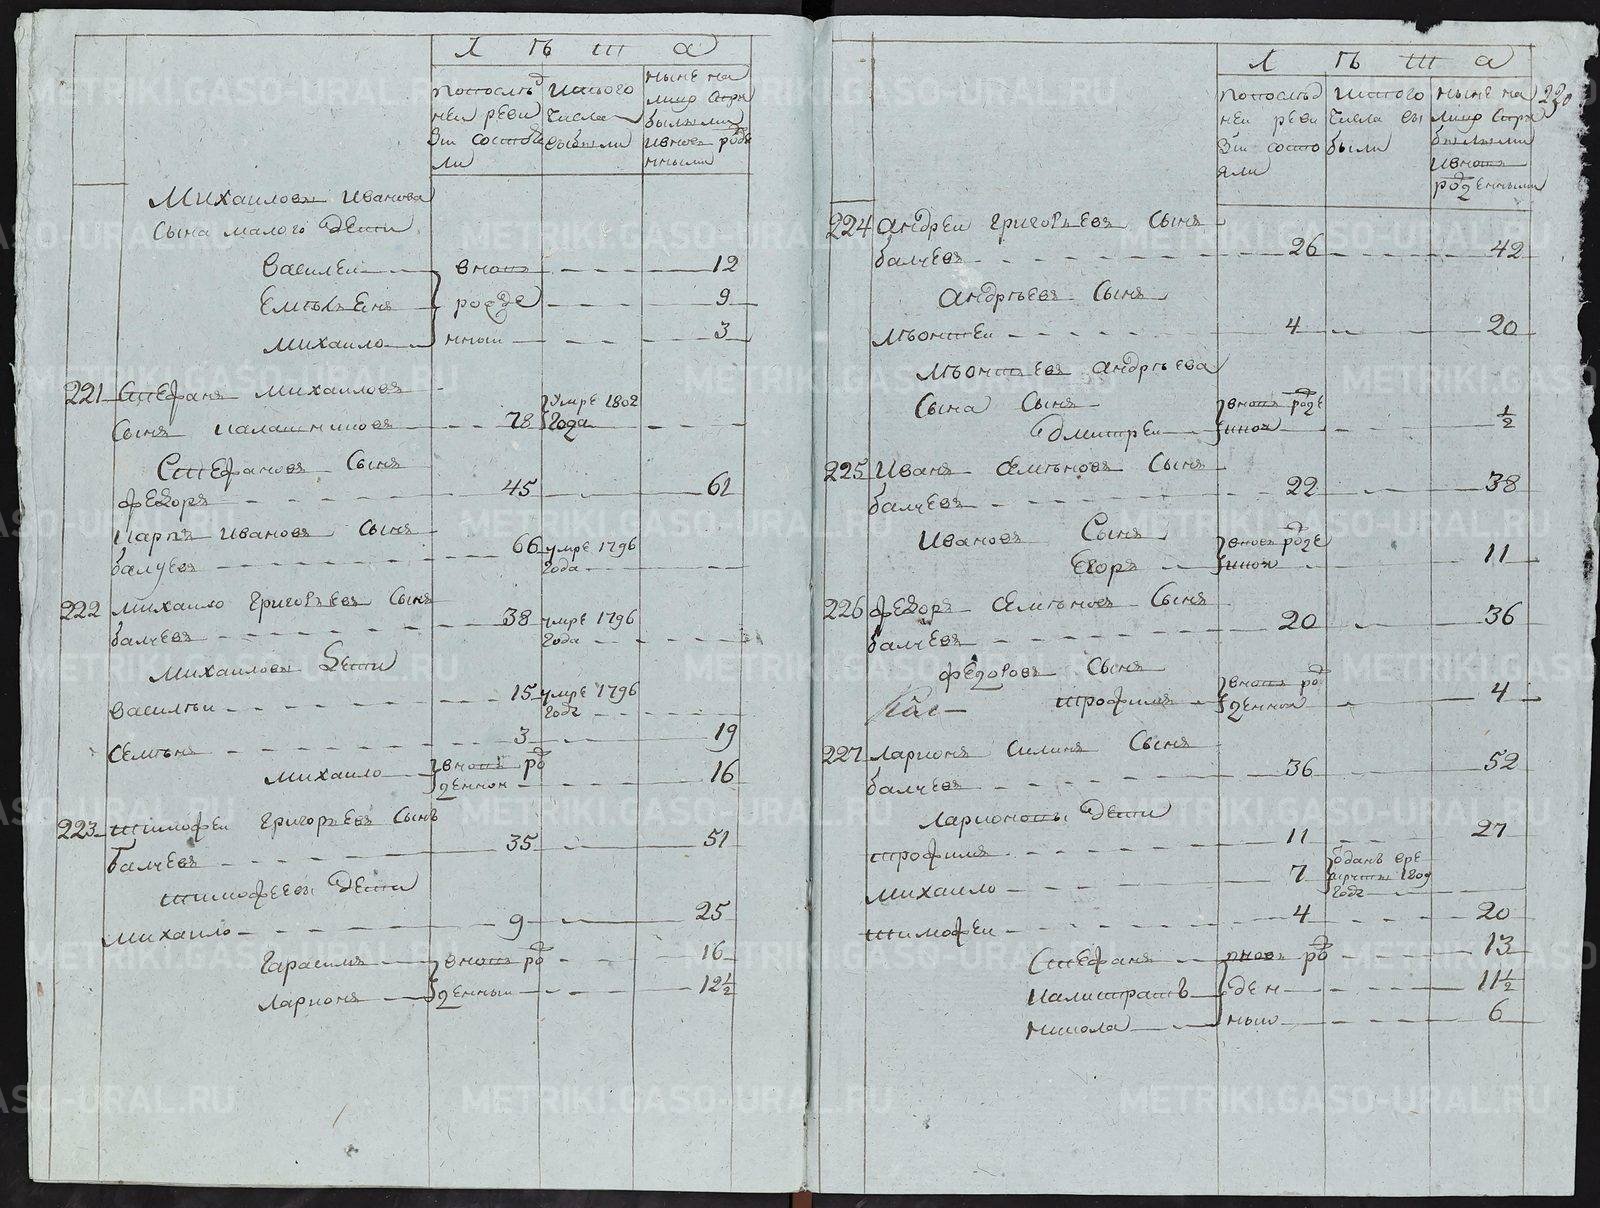 Л ѣ т а
попослѣд
неи реви
зіи состоя
ли
исътого
числа
выбыли
ныне на
лицо съпри
былыми
ивновь рожде
нными
Михаиловы Иванова
сына малого дети
Василеи вновь 12
Емельенъ рожде 9
Михаило нныи 3
221 Стефанъ Михаиловъ
сынъ Калашниковъ 78 умре 1802 года
Стефановъ сынъ
Федоръ 45 61
Карпъ Ивановъ сынъ
балуевъ 66 умре 1796 года
222 Михаило Григорьевъ сынъ
балчевъ 38 умре 1796 года
Михаиловы дети
Василеи 15 умре 1796 годъ
Семенъ 3 19
Михаило вновь рожденнои 16
223 Тимофеи Григорьевъ сынъ
балчевъ 35 51
Тимофеевы дети
Михаило 9 25
Гарасимъ вновь рож 16
Ларионъ денныи 12½
Л ѣ т а
попослѣд
неи реви
зіи состо
яли
исътого
числа вы
были
ныне на
лицо съпри
былыми
ивновь
рожденными
230
224 Андреи Григорьевъ сынъ
балчевъ 26 42
Андрѣевъ сынъ
Мѣонтеи 4 20
Мѣонтеевъ Андрѣева
сына сынъ
Дмитреи вновь рожденнои ½
225 Иванъ Семѣновъ сынъ
балчевъ 22 38
Ивановъ сынъ
Егоръ вновь рожденнои 11
226 Федоръ Семѣновъ сынъ
балчевъ 20 36
Федоровъ сынъ
Трофимъ вновь рожденнои 4
227 Ларионъ Силинъ сынъ
балчевъ 36 52
Ларионовы дети
Трофимъ 11 27
Михаило 7 одань вре круты 1809 годъ
Тимофеи 4 20
Стефанъ вновь рож 13
Калистратъ ден 11½
Никола ныи 6
METRIKI.GASO-URAL.RU